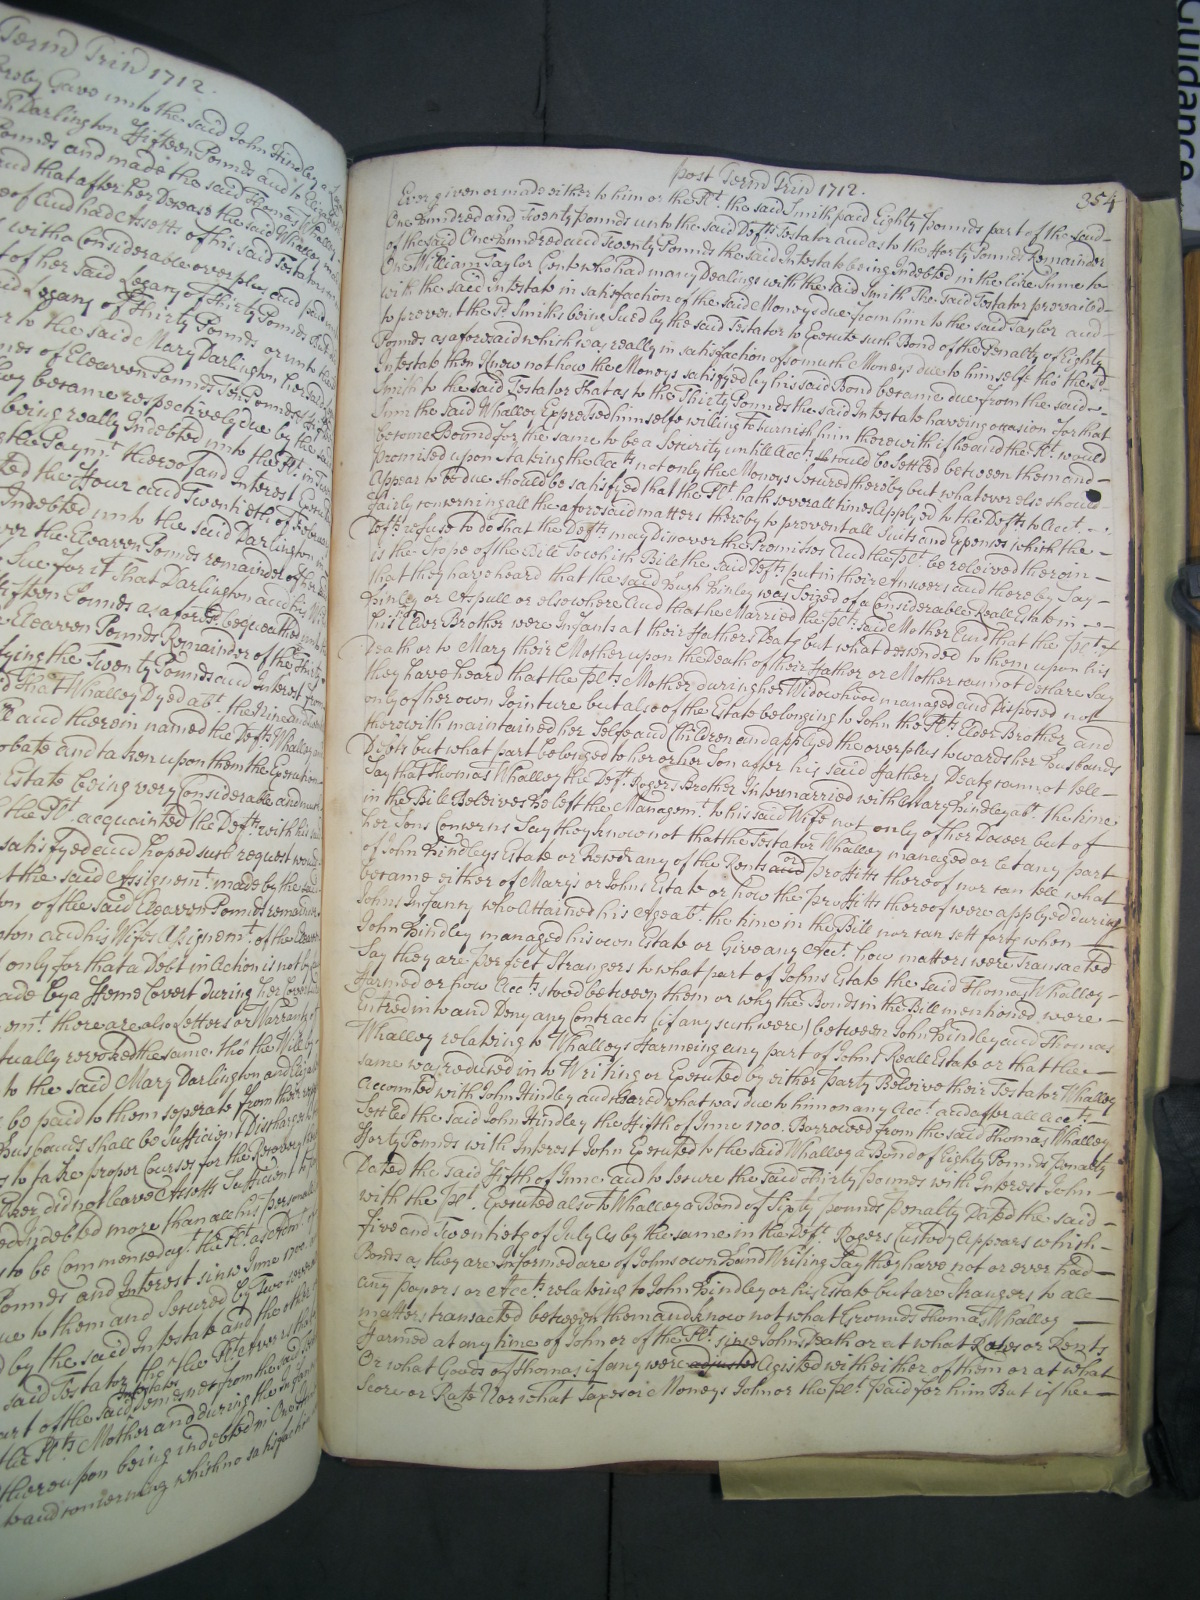 Term Trin 1712.
hereby Gave unto the said John Hindley a
Darlington Fifteen Pounds and to
Pounds and made the said Thomas Whalley
and that after her Decease the said Whalley
of And had Assetts of his said Testator
with a Considerable overplus and paid
of her said Legacy of Thirty Pounds
said Legacy of Thirty Pounds or unto
to the said Mary Darlington her
of Eleaven Pounds Ten Pounds
became respectively due by the said
being really Indebted unto the Plt. in
the Paymt. thereof and Interest
the Four and Twentieth of
Indebted unto the said Darlington
over the Eleaven Pounds remainder of
Sue for it That Darlington and his Wife
Fifteen Pounds as aforesd. bequeathed
Eleaven Pounds Remainder of the Thirty
the Twenty Pounds and Interest from
That Whalley Dyed abt. the Nine and
and therein named the Defts. Whalley
Probate and taken upon them the Execution
Estate being very Considerable and
the Plt. acquainted the Defts. with his
satisfyed and hoped such request would
the said Assignemt. made by the said
of the said Eleaven Pounds remainder
and his Wifes Assignemt. of the Eleaven
only for that a Debt in Action is not by
made by a Feme Covert during her
there are also Letters or Warrant of
revoked the same tho' the
to the said Mary Darlington and
be paid to them seperate from their
Husbands shall be Sufficient Discharge
to take proper Courses for the Recovery
did not leave Assetts Sufficient
Indebted more than all his personall
to be Commenced agt. the Plt. as Admr.
Pounds and Interest since June 1700
due to them and Secured by Two
by the said Intestate and the other
said Testator the the Plt. ever
part of the said Intestates from the said
the Plts. Mother and during the Infancy
thereupon being indebted in One
and concerning which no satisfaction
post Term Trin 1712.
354
Ever given or made either to him or the Plt. the said Smith paid Eighty Pounds part of the said
One Hundred and Twenty Pounds unto the said Defts. Testator and as to the Forty Pounds Remainder
of the said One Hundred and Twenty Pounds the said Intestate being Indebted in the like Sume to
One William Taylor Cent who had many Dealings with the said Smith The said Testator prevailed
with the said Intestate in satisfaction of the said Moneys due from him to the said Taylor and
to prevent the sd. Smiths being Sued by the said Testator to Execute such Bond of the Penalty of Eighty
Pounds as aforesaid which was really in satisfaction of so much Moneys due to himselfe tho' the sd.
Intestate then Knew not how the Moneys satisfyed by his said Bond became due from the said
Smith to the said Testator That as to the Thirty Pounds the said Intestate having occasion for that
Sum the said Whalley Expressed himselfe willing to furnish him therewith if he and the Plt. would
become Bound for the same to be a Security untill Accts. should be Settled between them and
Promised upon stateing the Accts. not only the Moneys Secured thereby but whatever else should
Appear to be due should be satisfyed that the Plt. hath severall times Applyed to the Defts. to Acct.
fairly concerning all the aforesaid matters thereby to prevent all Suits and Expences which the
Defts. refuse to do That the Defts. may Discover the Premisses And the Plt. be releived therein
is the Scope of the Bill To which Bill the said Defts. put in their Answers and thereby Say
that they have heard that the said Hugh Hinley was Seized of a Considerable Reall Estate in
Hinley or Aspull or elsewhere And that he Married the Plts. said Mother And that the Plt. &
his Elder Brother were Infants at their Fathers Death but what descended to them upon his
Death or to Mary their Mother upon the Death of their Father or Mother cannot declare Say
they have heard that the Plts. Mother during her Widowhood managed and Disposed not
only of her own Jointure but also of the Estate belonging to John the Plts. Elder Brother and
therewith maintained her Selfe and Children and applyed the overplus towards her Husbands
Debts but what part belonged to her or her Son after his said Fathers Death cannot tell
Say that Thomas Whalley the Deft. Rogers Brother Intermarried with Mary Hindley abt. the time
in the Bill Beleives he left the Managemt. to his said Wife not only of her Dower but of
her Sons Concerns Say they know not that the Testator Whalley managed or let any part
of John Hindleys Estate or Recd. any of the Rents or proffitts thereof nor can tell what
became either of Marys or Johns Estate or how the proffitts thereof were applyed during
Johns Infancy who Attained his Age abt. the time in the Bill nor can sett forth when
John Hindley managed his own Estate or Give any Acct. how matters were Transacted
Say they are perfect Strangers to what part of Johns Estate the said Thomas Whalley
Farmed or how Accts. stood between them or why the Bonds in the Bill mentioned were
Entred into and Deny any Contracts (if any such were) between John Hindley and Thomas
Whalley relateing to Whalleys Farmeing any part of Johns Reale Estate or that the
same was reduced into Writing or Executed by either party Beleive their Testator Whalley
accounted with John Hindley and cleared what was due to him on any Acct. and after all Accts.
Settled the said John Hindley the Fifth of June 1700. Borrowed from the said Thomas Whalley
Forty Pounds with Interest John Executed to the said Whalley a Bond of Eighty Pounds Penalty
Dated the said Fifth of June and to Secure the said Thirty pounds with Interest John
with the Plt. Executed also to Whalley a Bond of Sixty pounds penalty Dated the said
five and Twentieth of July As by the same in the Deft. Rogers Custody Appears which
Bonds as they are Informed are of Johns own Hand Writing Say they have not or ever had
any papers or Accts. relateing to John Hindley or his Estate but are Strangers to all
matters transacted between them and know not what Grounds Thomas Whalley
Farmed at any time of John or of the Plt. since Johns Death or at what Rates or Rents
Or what Goods of Thomas if any were adjusted Agisted with either of them or at what
Score or Rate Nor what Taxes or Moneys John or the Plt. paid for him But if he
Guidance